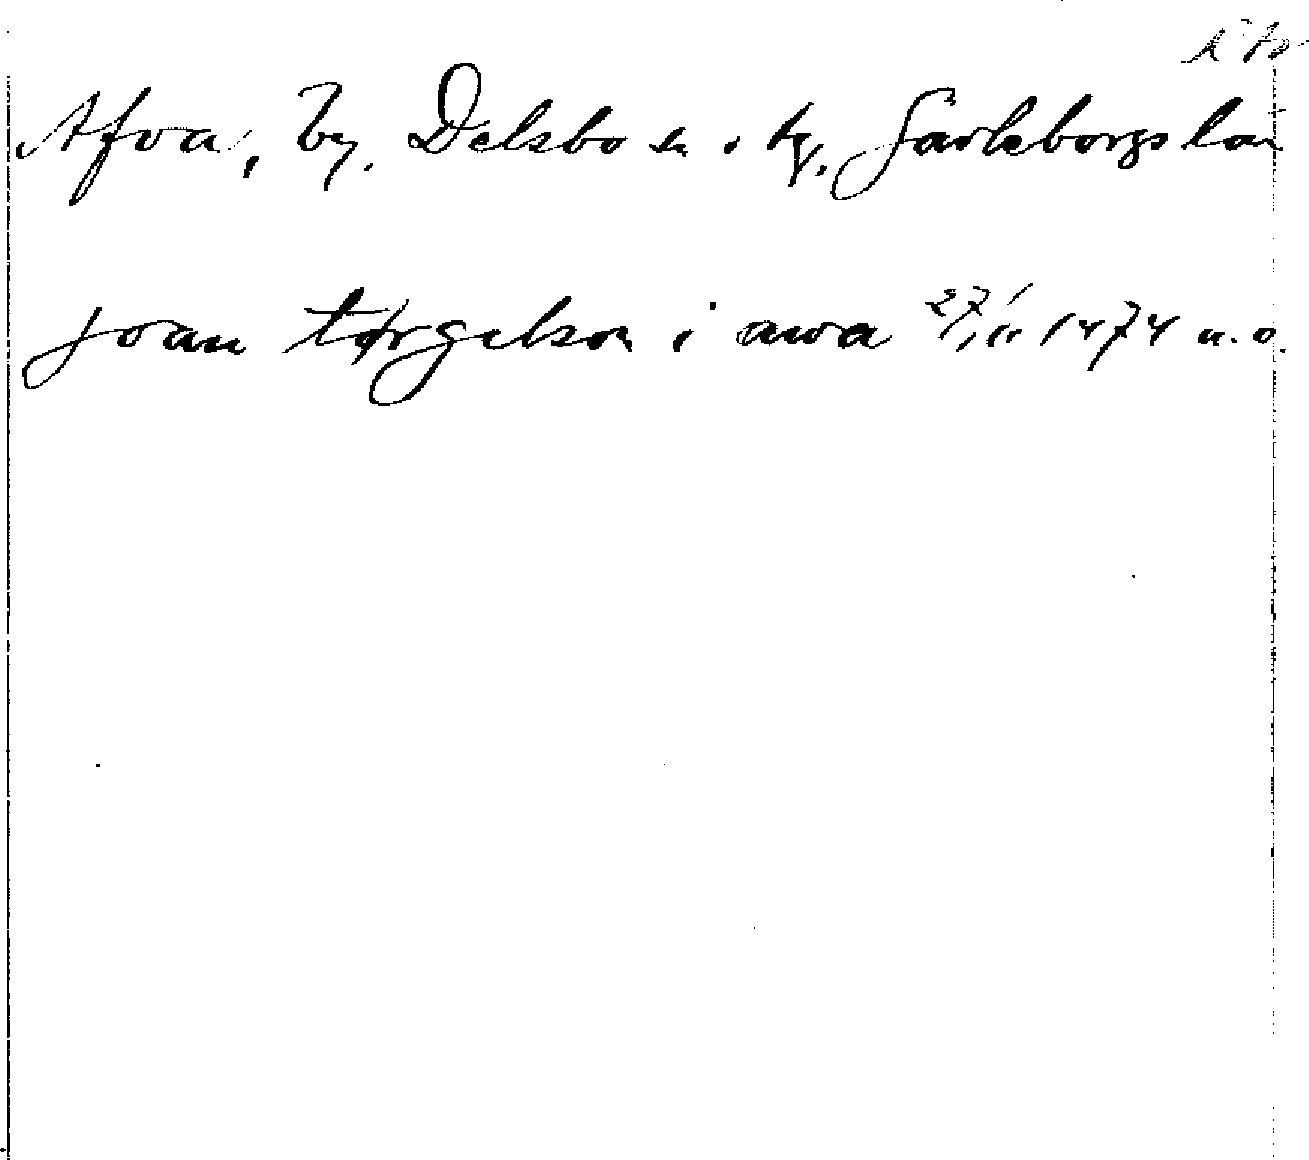 Afva, by. Delsbo sn o tg, Gävleborgs län
joan tørgelson i awa 27/11 1474 u. o.